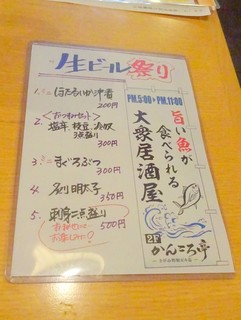 生ビール祭り
1. ほたるいか沖漬
200円
2. おつまみセット
塩辛、枝豆、冷奴
3点盛り
300円
3. まぐろぶつ
300円
4. 炙り明太子
350円
5. 刺身三点盛り
500円
PM.5:00▶PM.11:00
旨い魚が
食べられる
大衆居酒屋
2F
かんころ亭